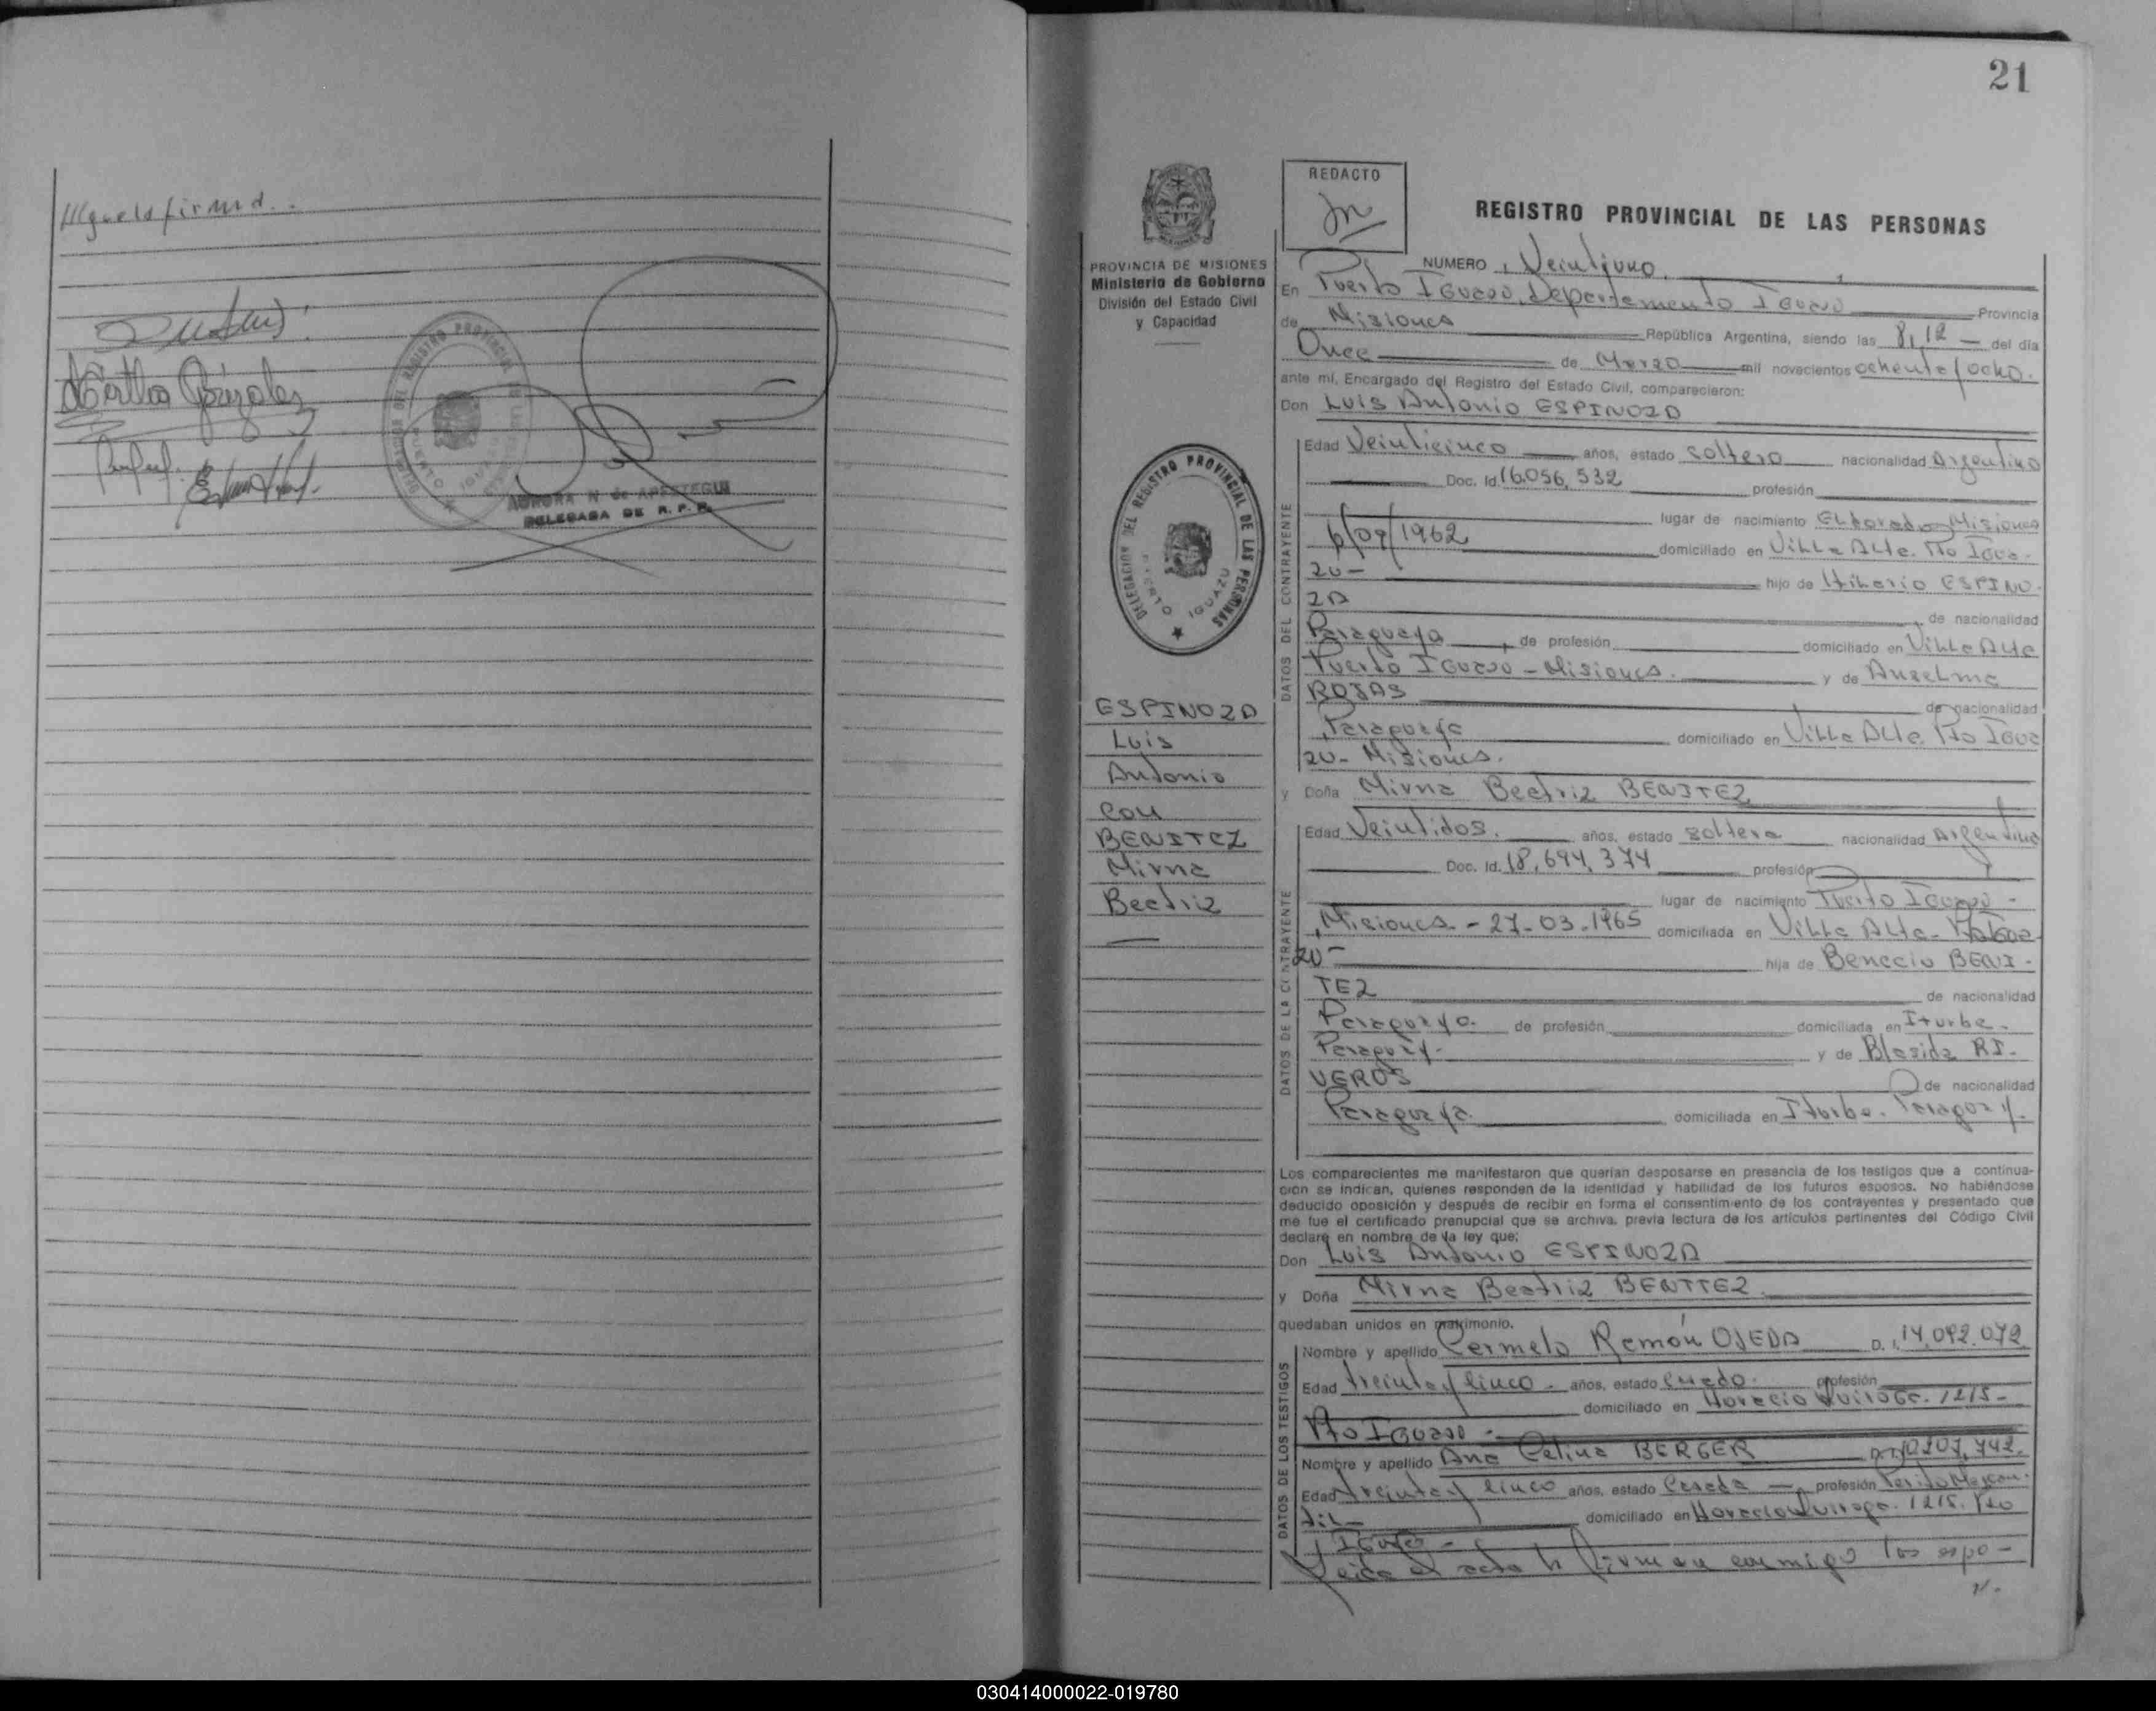 firma.
Bertha González
DELEGACION DEL REGISTRO PROVINCIAL DE LAS PERSONAS
PUERTO IGUAZU
AURORA N de APESTEGUI
DELEGADA DE R. P. P.
21
REDACTO
REGISTRO PROVINCIAL DE LAS PERSONAS
PROVINCIA DE MISIONES
Ministerio de Gobierno
División del Estado Civil
y Capacidad
DELEGACION DEL REGISTRO PROVINCIAL DE LAS PERSONAS
PUERTO IGUAZU
ESPINOZA
Luis
Antonio
con
BENITEZ
Mirna
Beatriz
NUMERO Veintiuno
En Puerto Iguazú, Departamento Iguazú Provincia
de Misiones República Argentina, siendo las 8,12 del día
Once de Marzo mil novecientos ochenta y ocho.
ante mí, Encargado del Registro del Estado Civil, comparecieron:
Don Luis Antonio ESPINOZA
DATOS DEL CONTRAYENTE
Edad Veinticinco años, estado soltero nacionalidad Argentino
Doc. Id. 16.056.532 profesión
lugar de nacimiento Eldorado, Misiones
6/09/1962 domiciliado en Villa Alta. Pto Igua-
zú- hijo de Hilario ESPINO-
ZA de nacionalidad
Paraguaya, de profesión domiciliado en Villa Alta
Puerto Iguazú - Misiones. y de Anselma
ROJAS de nacionalidad
Paraguaya domiciliado en Villa Alta. Pto Igua
zú- Misiones.
y Doña Mirna Beatriz BENITEZ
DATOS DE LA CONTRAYENTE
Edad Veintidos. años, estado soltera nacionalidad Argentina
Doc. Id. 18.694.374 profesión
lugar de nacimiento Puerto Iguazú -
Misiones - 27-03-1965 domiciliada en Villa Alta- Pto Igua
zú- hija de Benecio BENI-
TEZ de nacionalidad
Paraguaya. de profesión domiciliada en Iturbe.
Paraguay- y de Blasida RI-
VEROS de nacionalidad
Paraguaya. domiciliada en Iturbe. Paraguay.
Los comparecientes me manifestaron que querían desposarse en presencia de los testigos que a continua-
ción se indican, quienes responden de la identidad y habilidad de los futuros esposos. No habiéndose
deducido oposición y después de recibir en forma el consentimiento de los contrayentes y presentado que
me fue el certificado prenupcial que se archiva, previa lectura de los artículos pertinentes del Código Civil
declaré en nombre de la ley que:
Don Luis Antonio ESPINOZA
y Doña Mirna Beatriz BENITEZ
quedaban unidos en matrimonio.
DATOS DE LOS TESTIGOS
Nombre y apellido Carmelo Ramón OJEDA D.I. 14.092.072
Edad treinta y cinco - años, estado casado. profesión
domiciliado en Horacio Quiroga. 1215-
Pto Iguazú -
Nombre y apellido Ana Celina BERGER
Edad treinta y cinco años, estado Casada - profesión Perito Mercan-
til- domiciliado en Horacio Quiroga. 1215. Pto
Iguazú -
Leída el acta la firman conmigo los espo-
030414000022-019780